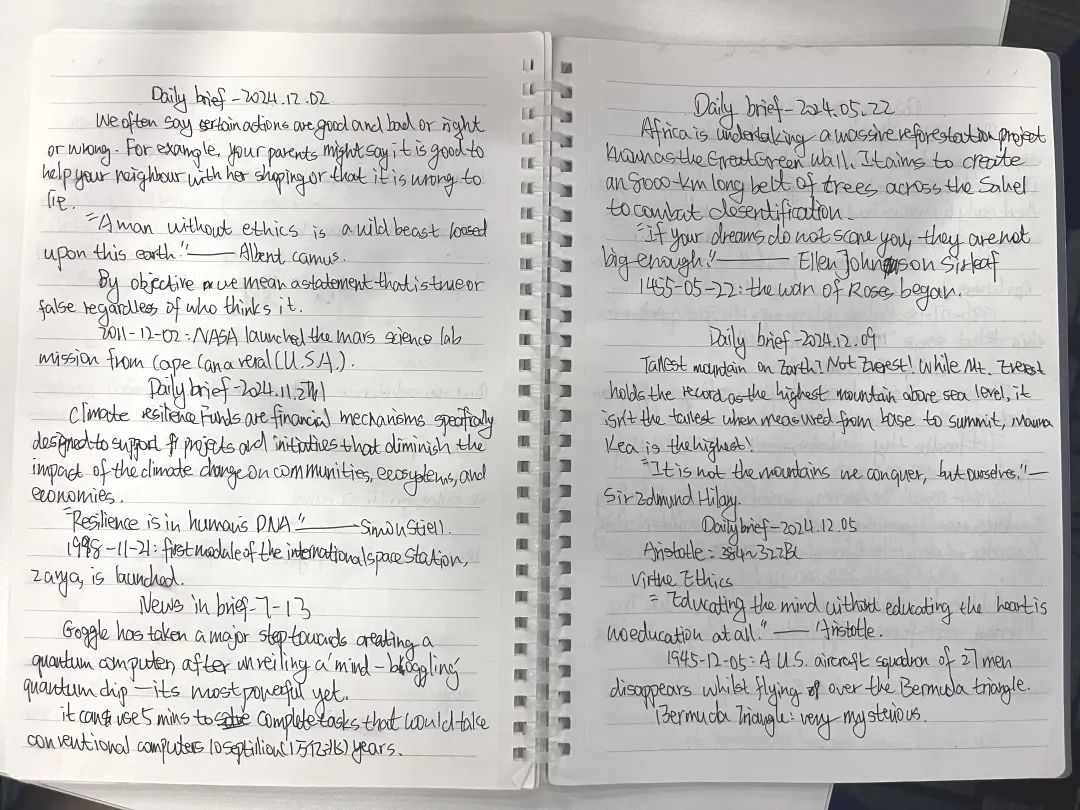 Daily brief - 2024.12.02
We often say certain actions are good and bad or right
or wrong. For example, your parents might say it is good to
help your neighbour with her shoping or that it is wrong to
lie.
"A man without ethics is a wild beast loosed
upon this earth." —— Albert camus.
By objective we mean a statement that is true or
false regardless of who thinks it.
2011-12-02: NASA launched the mars science lab
mission from Cape Canaveral (U.S.A.).
Daily brief - 2024.11.21
Climate resilience Funds are financial mechanisms specifically
designed to support projets and initiatives that diminish the
impact of the climate change on communities, ecosystems, and
economies.
"Resilience is in human's DNA." —— Simon Stiell.
1998-11-21: first module of the international space station,
zarya, is launched.
News in brief - 7-13
Goggle has taken a major step towards creating a
quantum computer, after unveiling a 'mind-bloggling'
quantum chip — its most powerful yet.
it can use 5 mins to complete tasks that would take
conventional computers 10 septilion (1万亿兆) years.
Daily brief - 2024.05.22
Africa is undertaking a massive reforestation project
known as the Great Green Wall. It aims to create
an 8000-km long belt of trees across the Sahel
to combat desentification.
"if your dreams do not scare you, they are not
big enough." —— Ellen Johnson Sirleaf
1455-05-22: the war of Roses began.
Daily brief - 2024.12.09
Tallest mountain on Earth? Not Everest! While Mt. Everest
holds the record as the highest mountain above sea level, it
isn't the tallest when measured from base to summit, Mauna
Kea is the highest!
"It is not the mountains we conquer, but ourselves." —
Sir Edmund Hilary.
Daily brief - 2024.12.05
Aristotle = 384~322BC
Virthe Ethics
"Educating the mind without educating the heart is
no education at all." — Aristotle.
1945-12-05: A U.S. aircraft squadron of 27 men
disappears whilst flying over the Bermuda triangle.
Bermuda Triangle: very mysterious.